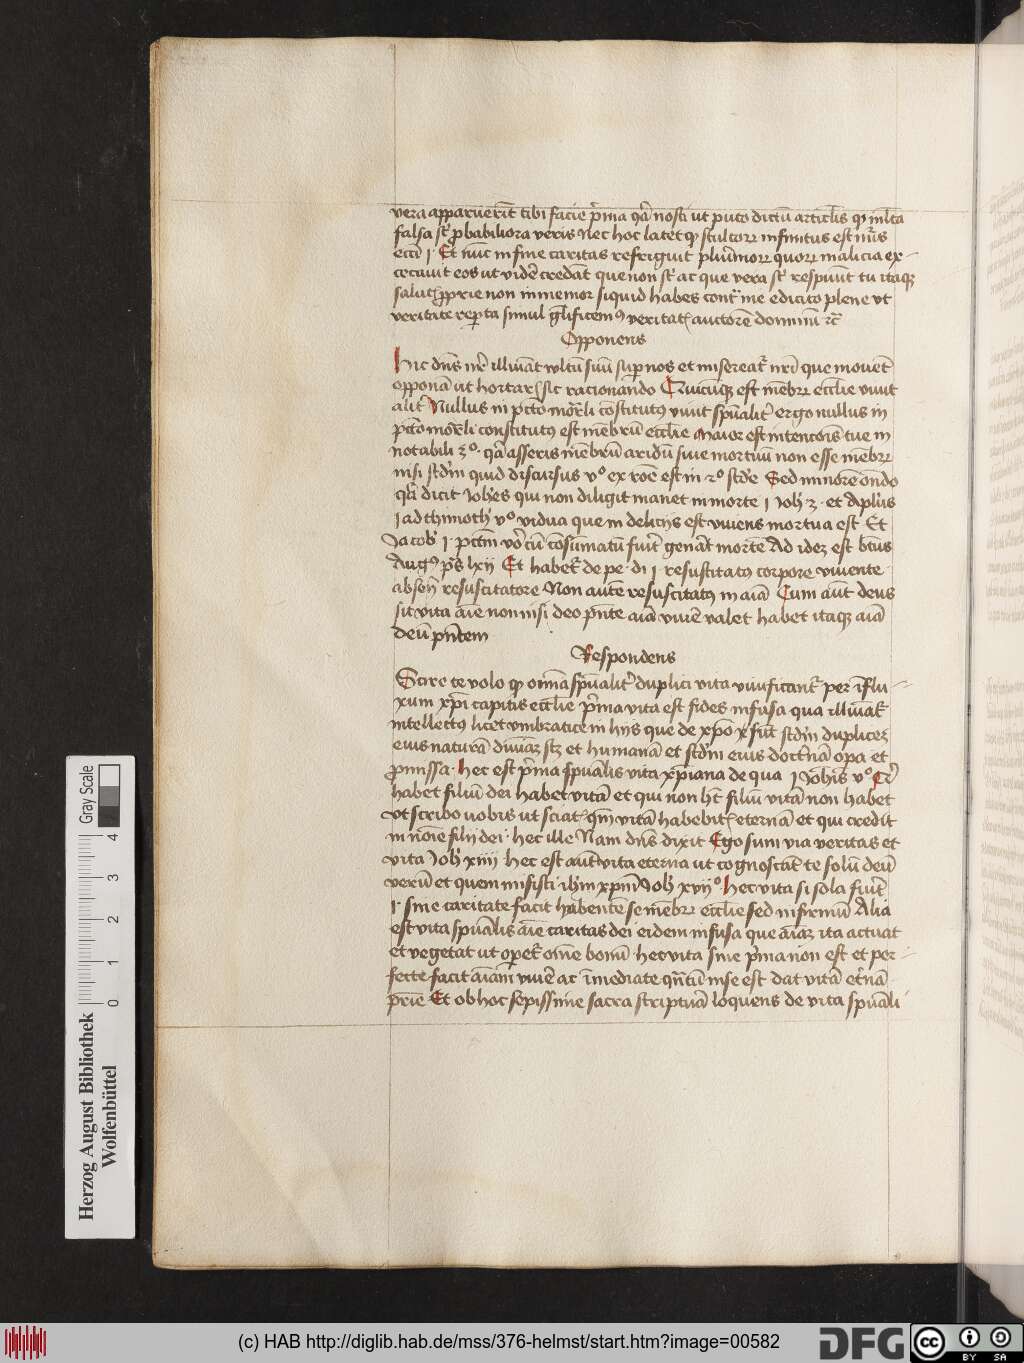 vera apparuerīt tibi facie p̄ma q̄a nosti ut puto dictū articl̄is qꝫ ml̄ta
falsa st̄ ꝓbabiliora veris Nec hoc latet qꝫ stultoꝝ infinitus est nūs
ecc̄i 1 Et nūc in fine caritas refriguit plūmoꝝ quoꝝ malicia ex-
cecauit eos ut videre credāt que non st̄ ac que vera st̄ respuūt tu itaqꝫ
salutis ꝓprie non inmemor siquid habes cont̄ me edicito plene ut
veritate reꝑta simul gl̄ificemꝰ veritatꝭ auctorē dominū ⁊c̄
Opponens
Hic dn̄s nr̄ illuīat vultū suū suꝑ nos et misereat̄ nr̄i que mouēt
opponā ut hortarꝭ sic racionando Quicūqꝫ est mēbꝝ eccl̄ie viuit
alit̄ Nullus in pctō mor̄li cōstitutꝰ viuit spūalit̄ ergo nullus in
pctō mor̄li constitutꝰ est mēbrū eccl̄ie Maior est intencōis tue in
notabili 3ᵒ q̄a asseris mēbrū aridū siue mortuū non esse mēbꝝ
nisi scd̄m quid discursus vᵒ ex rōe est in 2ᵒ scd̄e Sed minorē on̄do
q̄a dicit Joh̄es qui non diligit manet in morte 1 Joh̄ 3 et Apl̄us
1 ad thimoth̄ vᵒ vidua que in delicijs est viuens mortua est Et
Jacob̄ 1 pctm̄ vō cū cōsumatū fuīt gen̄at mortē Ad idem est btūs
Augꝰ ps̄ lxij Et habet̄ de pe di 1 resuscitatꝰ corpore viuente
absen̄ resuscitatore Non autē resuscitatꝰ in aīa Cum aūt deus
sit vita aīe non nisi deo pn̄te aīa viuē valet habet itaqꝫ aīa
deū pn̄tem
Respondens
Scire te volo qꝫ om̄ia spūalit̄ duplici vita viuificant̄ per īflu-
xum xp̄i capitis eccl̄ie p̄ma vita est fides infusa qua illuīat̄
intellectꝰ licet vmbratice in hijs que de xp̄o x̄ sūt scd̄m duplicem
eius naturā diuinaꝫ scꝫ et humanā et scd̄m eius doct̄nā opa et
ꝓmissa Hec est p̄ma spūalis vita xp̄iana de qua 1 Joh̄is vᵒ Qui
habet filiū dei habet vitā et qui non hꝫ filiū vitā non habet
vt scribo vobis ut sciatꝭ qm̄ vitā habebitꝭ eternā et qui credit
in noīe filij dei hec ille Nam dn̄s dixit Ego sum via veritas et
vita Joh̄ xiiij hec est aūt vita eterna ut cognoscāt te solū deū
verū et quem misisti ih̄m xpm̄ Joh̄ xvijᵒ Hec vita si sola fuīt
1 sine caritate facit habentē se mēbꝝ eccl̄ie sed infirmū Alia
est vita spūalis aīe caritas dei eidem infusa que aīaꝫ ita actuat
et vegetat ut oꝑet̄ om̄e bonū hec vita sine p̄ma non est et per-
fecte facit aīam viuē ac īmediate q̄ntū in se est dat vitā et̄nā
pr̄ie Et ob hoc sepissime sacra sc̄ptura loquens de vita spūali
Herzog August Bibliothek
Wolfenbüttel
0 1 2 3 4
Gray Scale
(c) HAB http://diglib.hab.de/mss/376-helmst/start.htm?image=00582
DFG
cc BY SA